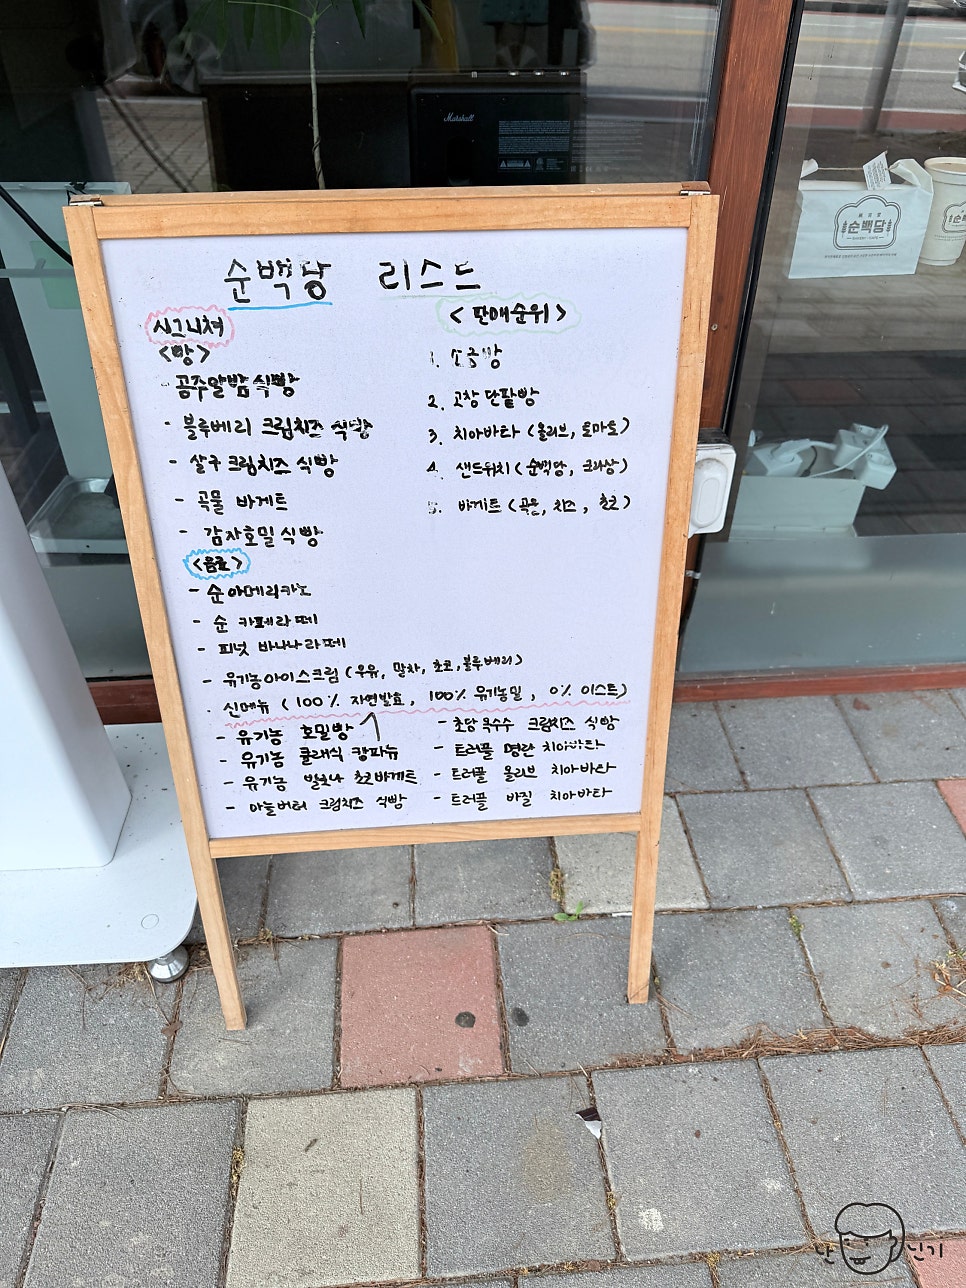 Marshall
순백당 리스트
시그니쳐
<빵>
- 공주알밤 식빵
- 블루베리 크림치즈 식빵
- 살구 크림치즈 식빵
- 곡물 바게트
- 감자호밀 식빵
<음료>
- 순 아메리카노
- 순 카페라떼
- 피넛 바나나라떼
- 유기농아이스크림 (우유, 말차, 초코, 블루베리)
<판매순위>
1. 소금빵
2. 고창 단팥빵
3. 치아바타 (올리브, 토마토)
4. 샌드위치 (순백당, 크와상)
5. 바게트 (곡물, 치즈, 초코)
신메뉴 (100% 자연발효, 100% 유기농밀, 0% 이스트)
- 유기농 호밀빵
- 유기농 클래식 깜파뉴
- 유기농 발로나 초코바게트
- 마늘버터 크림치즈 식빵
- 초당옥수수 크림치즈 식빵
- 트러플 명란 치아바타
- 트러플 올리브 치아바타
- 트러플 바질 치아바타
순백당
난 닌기